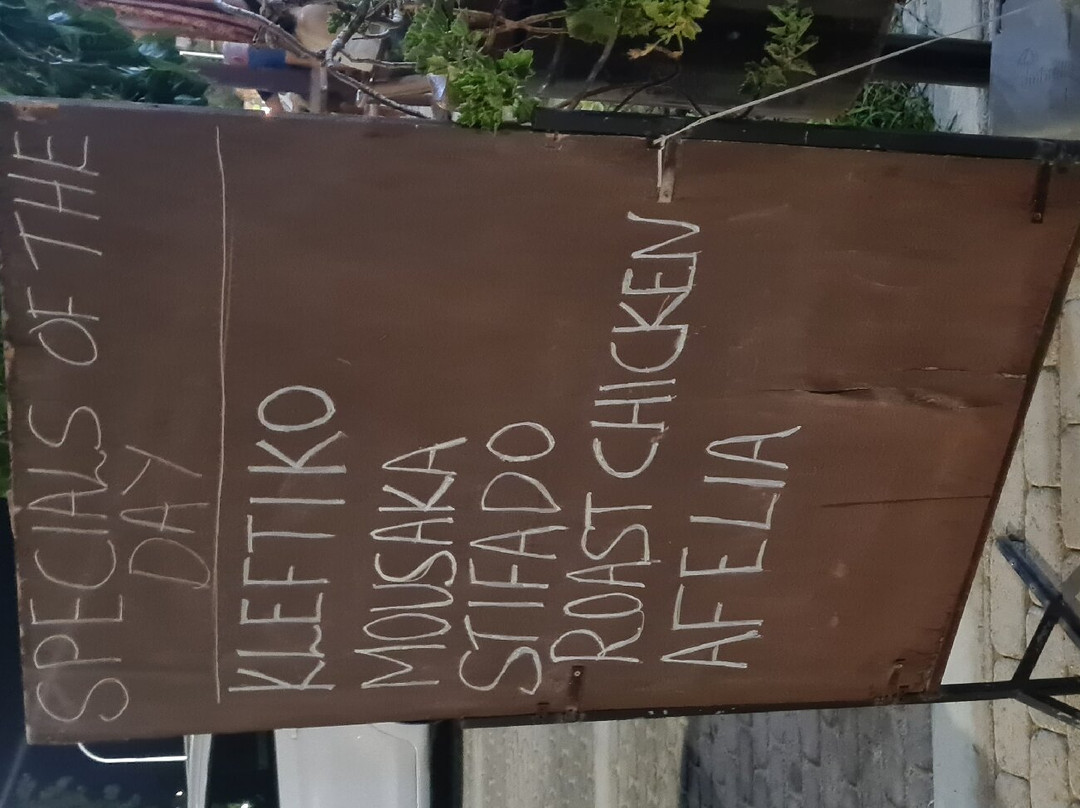 SPECIALS OF THE
DAY
KLEFTIKO
MOUSAKA
STIFADO
ROAST CHICKEN
AFELIA